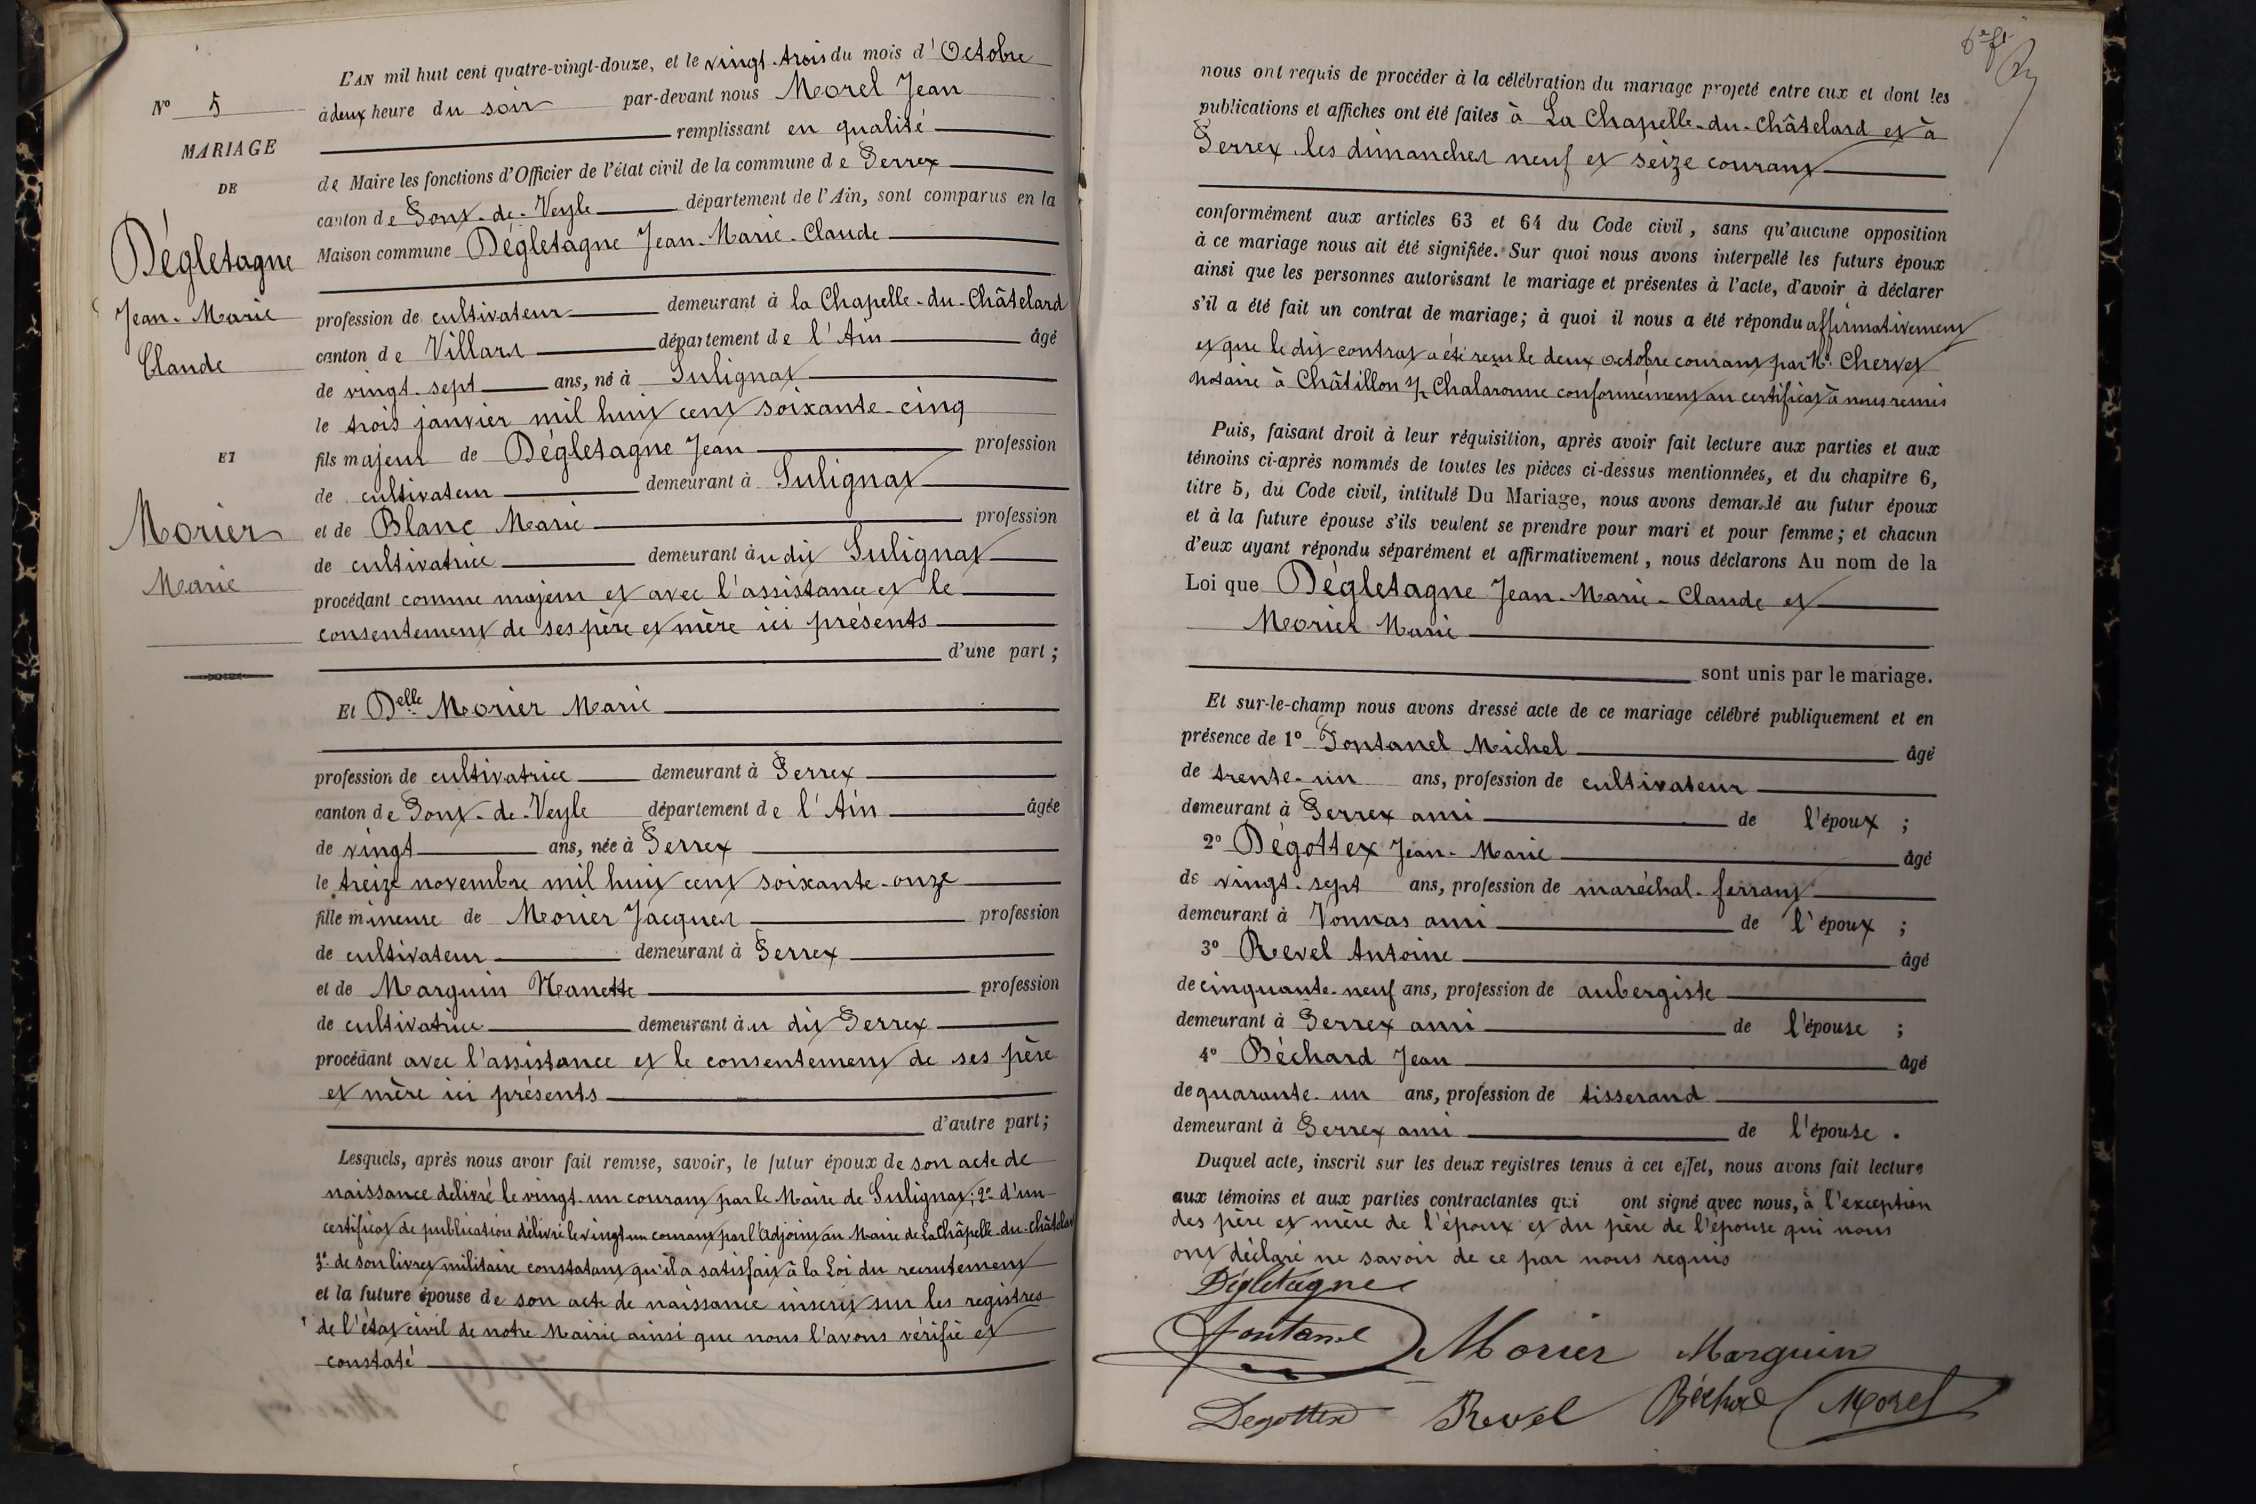 N° 5
MARIAGE
DE
Dégletagne
Jean-Marie
Claude
ET
Morier
Marie
L'AN mil huit cent quatre-vingt-douze, et le vingt-trois du mois d'Octobre
à deux heure du soir par-devant nous Morel Jean
remplissant en qualité
de Maire les fonctions d'Officier de l'état civil de la commune de Perrex
canton de Pont-de-Veyle département de l'Ain, sont comparus en la
Maison commune Dégletagne Jean-Marie-Claude
profession de cultivateur demeurant à la Chapelle-du-Châtelard
canton de Villars département de l'Ain âgé
de vingt-sept ans, né à Sulignat
le trois janvier mil huit cent soixante-cinq
fils majeur de Dégletagne Jean profession
de cultivateur demeurant à Sulignat
et de Blanc Marie profession
de cultivatrice demeurant au dit Sulignat
procédant comme majeur et avec l'assistance et le
consentement de ses père et mère ici présents
d'une part ;
Et Delle Morier Marie
profession de cultivatrice demeurant à Perrex
canton de Pont-de-Veyle département de l'Ain âgée
de vingt ans, née à Perrex
le treize novembre mil huit cent soixante-onze
fille mineure de Morier Jacques profession
de cultivateur demeurant à Perrex
et de Marguin Nanette profession
de cultivatrice demeurant au dit Perrex
procédant avec l'assistance et le consentement de ses père
et mère ici présents
d'autre part ;
Lesquels, après nous avoir fait remise, savoir, le futur époux de son acte de
naissance délivré le vingt-un courant par le Maire de Sulignat ; 2° d'un
certificat de publication délivré le vingt-un courant par l'Adjoint au Maire de La Châpelle-du-Châtelard
3° de son livret militaire constatant qu'il a satisfait à la Loi du recrutement
et la future épouse de son acte de naissance inscrit sur les registres
de l'état civil de notre Mairie ainsi que nous l'avons vérifié et
constaté
nous ont requis de procéder à la célébration du mariage projeté entre eux et dont les
publications et affiches ont été faites à La Chapelle-du-Châtelard et à
Perrex les dimanches neuf et seize courant
conformément aux articles 63 et 64 du Code civil, sans qu'aucune opposition
à ce mariage nous ait été signifiée. Sur quoi nous avons interpellé les futurs époux
ainsi que les personnes autorisant le mariage et présentes à l'acte, d'avoir à déclarer
s'il a été fait un contrat de mariage ; à quoi il nous a été répondu affirmativement
et que le dit contrat a été reçu le deux octobre courant par Me Chervet
notaire à Châtillon s/ Chalaronne conformément au certificat à nous remis
Puis, faisant droit à leur réquisition, après avoir fait lecture aux parties et aux
témoins ci-après nommés de toutes les pièces ci-dessus mentionnées, et du chapitre 6,
titre 5, du Code civil, intitulé Du Mariage, nous avons demandé au futur époux
et à la future épouse s'ils veulent se prendre pour mari et pour femme ; et chacun
d'eux ayant répondu séparément et affirmativement, nous déclarons Au nom de la
Loi que Dégletagne Jean-Marie-Claude et
Morier Marie
sont unis par le mariage.
Et sur-le-champ nous avons dressé acte de ce mariage célébré publiquement et en
présence de 1° Fontanel Michel âgé
de trente-un ans, profession de cultivateur
demeurant à Perrex ami de l'époux ;
2° Dégottex Jean-Marie âgé
de vingt-sept ans, profession de maréchal-ferrant
demeurant à Vonnas ami de l'époux ;
3° Revel Antoine âgé
de cinquante-neuf ans, profession de aubergiste
demeurant à Perrex ami de l'épouse ;
4° Béchard Jean âgé
de quarante-un ans, profession de tisserand
demeurant à Perrex ami de l'épouse .
Duquel acte, inscrit sur les deux registres tenus à cet effet, nous avons fait lecture
aux témoins et aux parties contractantes qui ont signé avec nous, à l'exception
des père et mère de l'époux et du père de l'épouse qui nous
ont déclaré ne savoir de ce par nous requis
Dégletagne
Fontanel Morier Marguin
Degottex Revel Béchard Morel